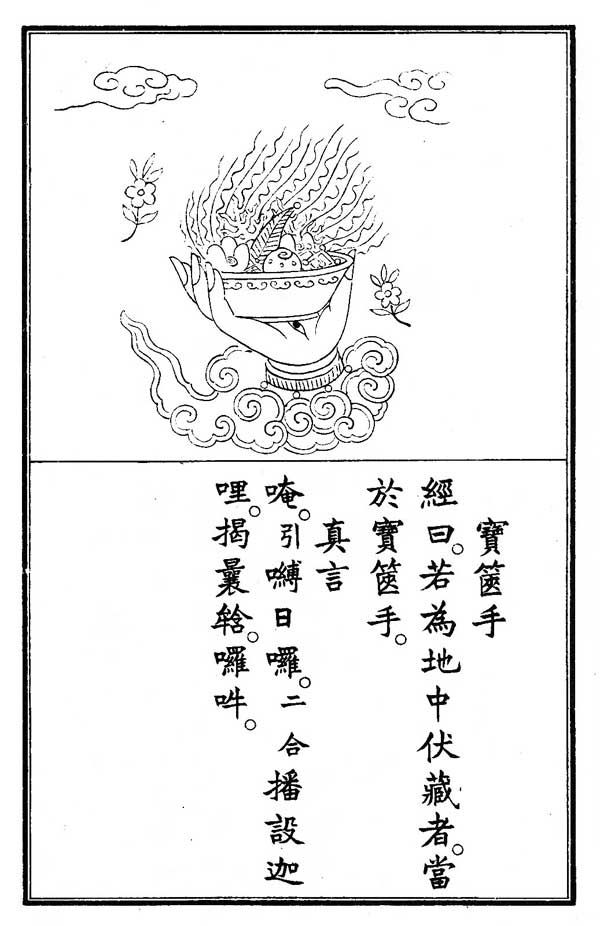 寶篋手
經曰。若為地中伏藏者。當
於寶篋手。
真言
唵。引嚩日囉。二合播設迦
哩。揭曩𤚥。囉吽。